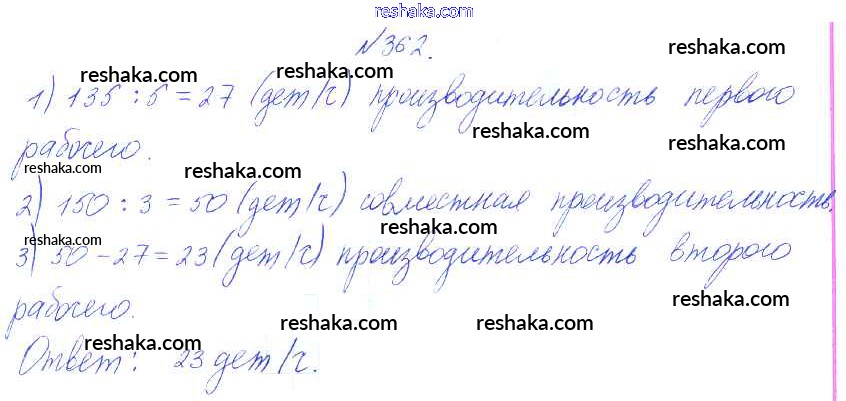 reshaka.com
№362.
reshaka.com
reshaka.com reshaka.com
1) 135 : 5 = 27 (дет/ч) производительность первого
reshaka.com
рабочего.
reshaka.com
reshaka.com reshaka.com
2) 150 : 3 = 50 (дет/ч) совместная производительность.
reshaka.com
reshaka.com
3) 50 - 27 = 23 (дет/ч) производительность второго
reshaka.com
рабочего.
reshaka.com reshaka.com
Ответ: 23 дет/ч.